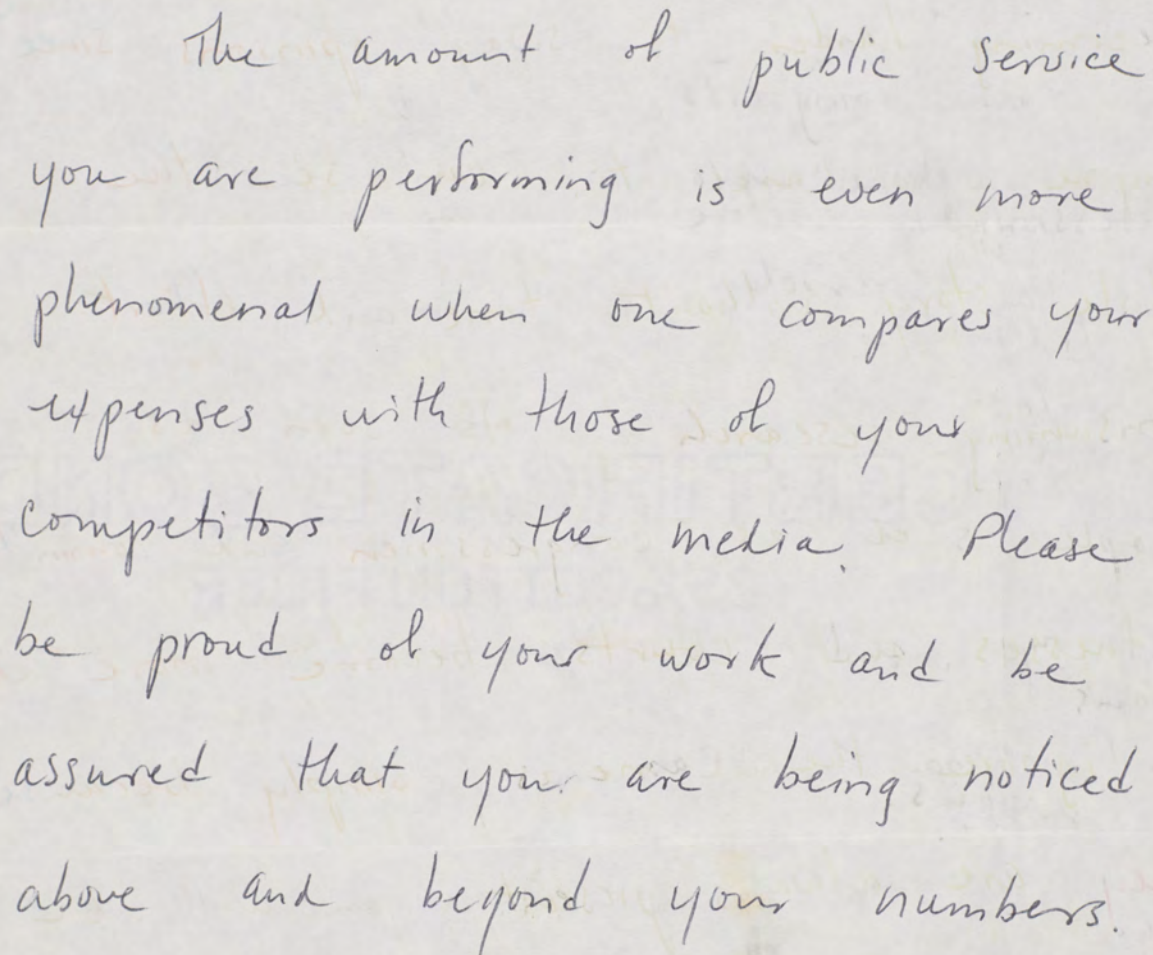 The amount of public service
you are performing is even more
phenomenal when one compares your
expenses with those of your
competitors in the media. Please
be proud of your work and be
assured that you are being noticed
above and beyond your numbers.